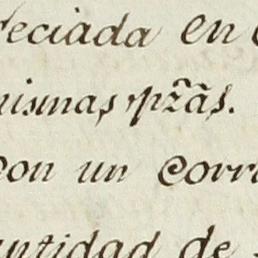 reciada en
mismas pzãs.
con un corr
antidad de